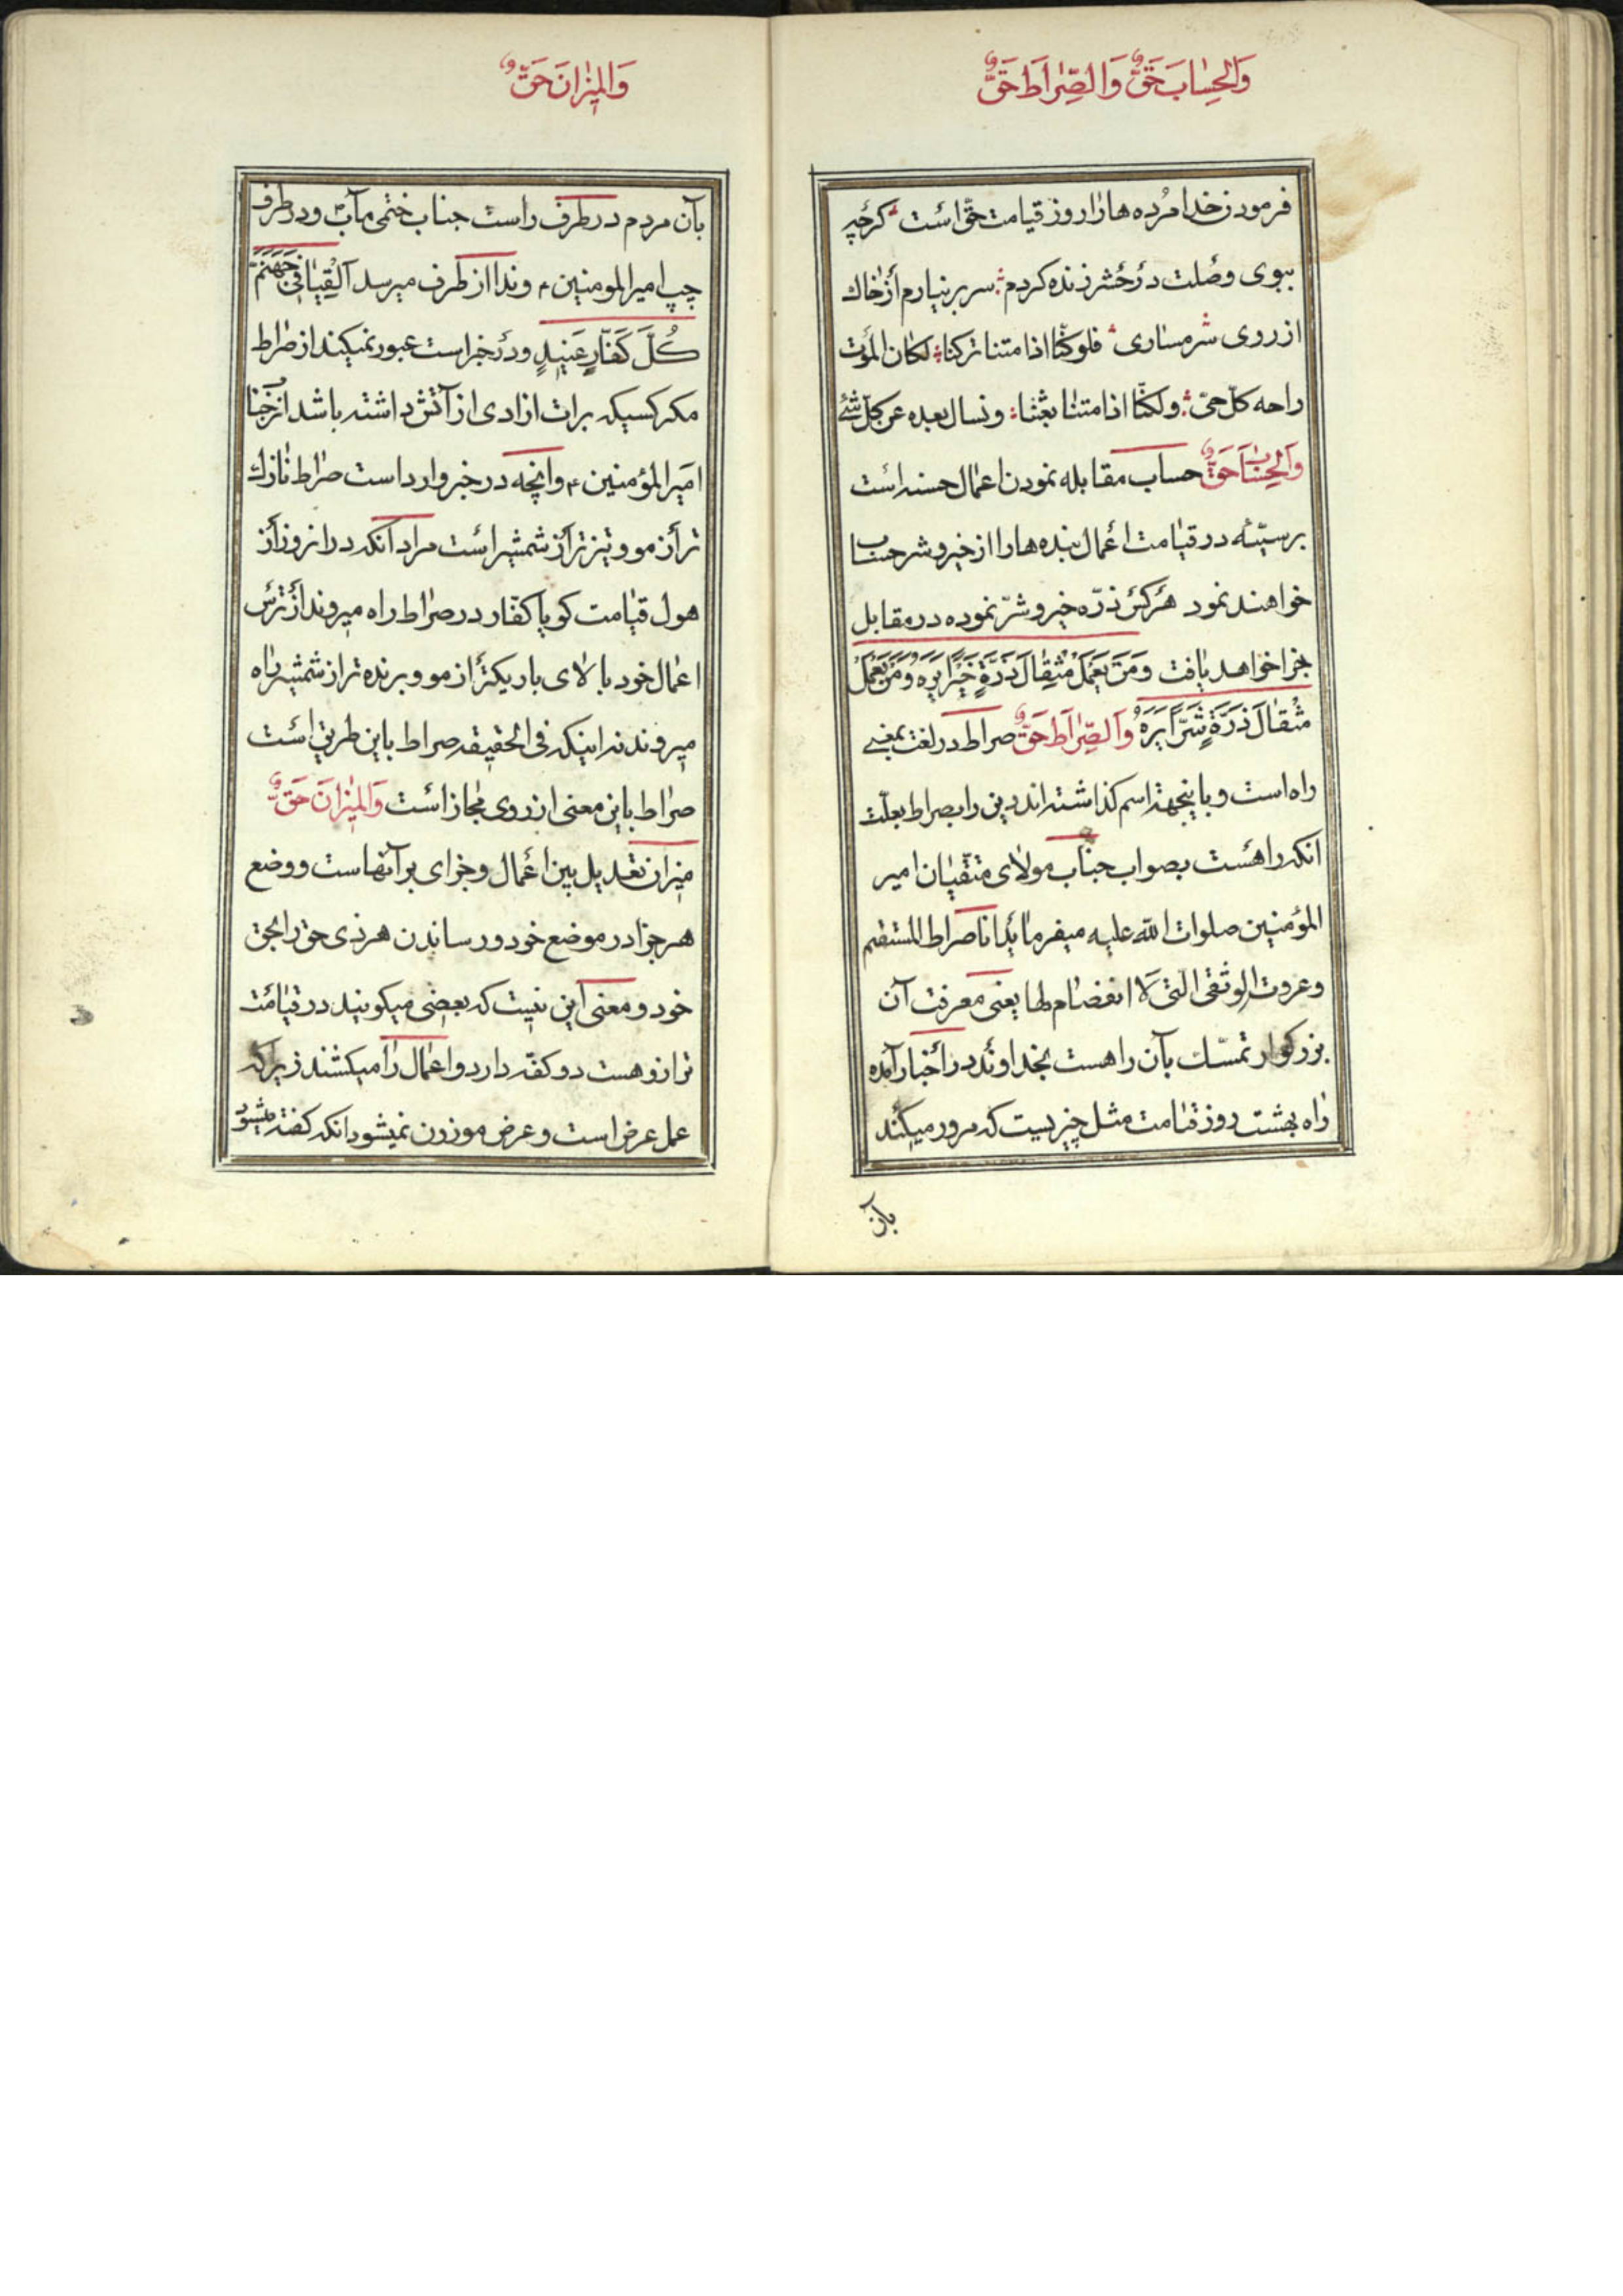 وَالحِسٰابَ حَقٌّ وَالصِّرٰاطَ حَقٌّ
فرمودن خدا مُرده ها را روز قیامت حقّ است کرچه
ببوی وصلت در حشر زنده کردم سر بر نیارم از خاك
از روی شرمساری فلو کنّا اذا متنا ترکنا لکان الموت
راحه کلّ حیّ ولکنّا اذا متنا بعثنا ونسال بعده عن کل شئ
وَالحِسٰابَ حَقٌّ حساب مقابله نمودن اعمال حسنه است
بر سیّئه در قیامت اعمال بنده ها را از خیر و شر حساب
خواهند نمود هر کس ذرّه خیر و شرّ نموده در مقابل
جزا خواهد یافت وَمَن یَعمَل مثقٰالَ ذَرَّةٍ خَیْراً یَرَهُ وَمَن یَعمَل
مثْقٰالَ ذَرَّةٍ شَرّاً یَرَهُ وَالصِّرٰاطَ حَقٌّ صراط در لغت بمعنی
راه است و باینجهة اسم کذاشته اند دین را بصراط بعلّت
انکه راهست بصواب جناب مولای متّقیان امیر
المؤمنین صلوات الله علیه میفرماید انا صراط المستقیم
وعروت الوثقی التی لا انفضام لها یعنی معرفت آن
بزرکوار تمسّك بآن راهست بخداوند در اخبار آمده
راه بهشت روز قیامت مثل چیزیست که مرور میکند
بآن
وَالمیٖزٰانَ حَقٌّ
بآن مردم در طرف راست جناب ختمی مآب و در طرف
چپ امیر المومنین ؏ و ندا از طرف میرسد اَلْقِیٰا فی جَهَنَّمَ
کُلَّ کَفّارٍ عَنیدٍ و در خبر است عبور نمیکند از صراط
مکر کسیکه برات ازادی از آتش داشته باشد از جناب
امیر المؤمنین ؏ و انچه در خبر وارد است صراط نازك
تر از مو و تیز تر از شمشیر است مراد آنکه در انروز از
هول قیامت کویا کفّار در صراط راه میروند از ترس
اعمال خود بالای باریکتر از مو و برنده تر از شمشیر راه
میروند نه اینکه فی الحقیقه صراط باین طریق است
صراط باین معنی از روی مجاز است وَالمیزٰانَ حَقٌّ
میزان تعدیل بین اعمال و جزای بر آنهاست و وضع
هر جزا در موضع خود و رساندن هر ذی حق را بحق
خود و معنی این نیست که بعضی میکویند در قیامت
ترازو هست دو کفّه دارد و اعمال را میکشند زیرا که
عمل عرض است و عرض موزون نمیشود انکه کفته میشود